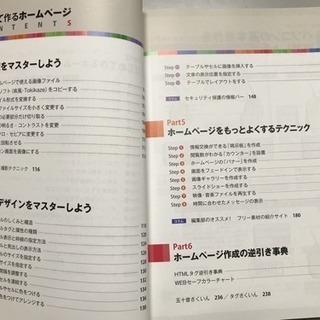 て作るホームページ
NTENTS
をマスターしよう
ページで使える画像ファイル
ソフト（蔵風・Tokikaze）をコピーする
イル形式を変換する
ファイルサイズを小さく変更する
の必要部分だけ切り取る
の明るさ・コントラストを変更
ロ・セピアに変更する
回転させる
ン画面を画像にする
撮影テクニック 116
デザインをマスターしよう
ルのしくみと構造
のタグと属性の種類
ル表示と枠線の指定方法
116
118
120
126
130
132
134
Step テーブルやセルに画像を挿入する
Step 文章の表示位置を指定する
Step テーブルでレイアウトをする
コラム セキュリティ保護の情報バー 148
Part5
ホームページをもっとよくするテクニック
Step 情報交換ができる「掲示板」を作成
Step 閲覧数がわかる「カウンター」を設置
Step ホームページの「バナー」を作成
Step 画面をフェードインで表示する
Step 画像ギャラリーを作成する
Step スライドショーを作成する
Step 映像・音楽ファイルを再生する
Step 時間に合わせたメッセージの表示
コラム 編集部のオススメ！ フリー素材の紹介サイト 180
Part6
ホームページ作成の逆引き事典
HTMLタグ逆引き事典
WEBセーフカラーチャート
五十音さくいん 236 ／タグさくいん 238